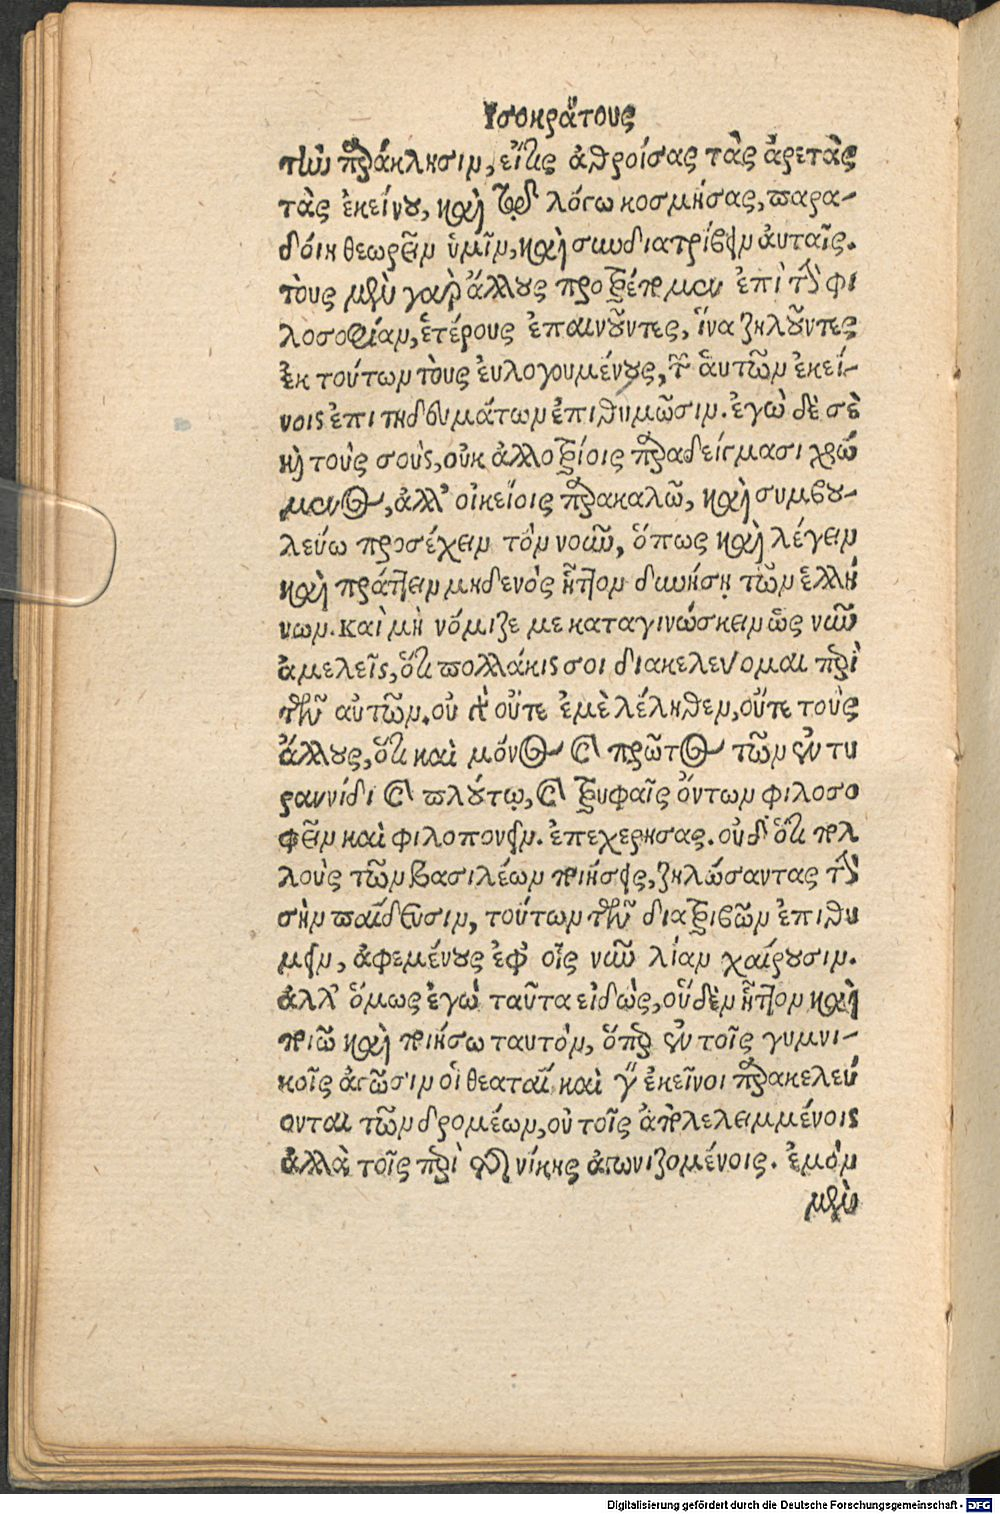 Ἰσοκράτους
τὴν παράκλησιν, εἴ τις ἀθροίσας τὰς ἀρετὰς
τὰς ἐκείνου, καὶ τῷ λόγῳ κοσμήσας, παρα-
δοίη θεωρεῖν ὑμῖν, καὶ συνδιατρίβειν αὐταῖς.
τοὺς μὲν γὰρ ἄλλους προτρέπομαι ἐπὶ τὴν φι
λοσοφίαν, ἑτέρους ἐπαινοῦντες, ἵνα ζηλοῦντες
ἐκ τούτων τοὺς εὐλογουμένους, τῶν αὐτῶν ἐκεί-
νοις ἐπιτηδευμάτων ἐπιθυμῶσιν. ἐγὼ δὲ σὲ
καὶ τοὺς σοὺς, οὐκ ἀλλοτρίοις παραδείγμασι χρώ
μενος, ἀλλ' οἰκείοις παρακαλῶ, καὶ συμβου-
λεύω προσέχειν τὸν νοῦν, ὅπως καὶ λέγειν
καὶ πράττειν μηδενὸς ἧττον δυνήσῃ τῶν ἑλλή
νων. Καὶ μὴ νόμιζε με καταγινώσκειν ὡς νῦν
ἀμελεῖς, ὅτι πολλάκις σοι διακελεύομαι περὶ
τῶν αὐτῶν. οὐ γὰρ οὔτε ἐμὲ λέληθεν, οὔτε τοὺς
ἄλλους, ὅτι καὶ μόνος καὶ πρῶτος τῶν ἐν τυ
ραννίδι καὶ πλούτῳ, καὶ τρυφαῖς ὄντων φιλοσο
φεῖν καὶ φιλοπονεῖν. ἐπεχείρησας. οὐδ' ὅτι πολ
λοὺς τῶν βασιλέων ποιήσεις, ζηλώσαντας τὴν
σὴν παίδευσιν, τούτων τῶν διατριβῶν ἐπιθυ
μεῖν, ἀφεμένους ἐφ' οἷς νῦν λίαν χαίρουσιν.
ἀλλ' ὅμως ἐγὼ ταῦτα εἰδὼς, οὐδὲν ἧττον καὶ
ποιῶ καὶ ποιήσω ταυτὸν, ὅπερ ἐν τοῖς γυμνι-
κοῖς ἀγῶσιν οἱ θεαταί καὶ γὰρ ἐκεῖνοι παρακελεύ
ονται τῶν δρομέων, οὐ τοῖς ἀπολελειμμένοις
ἀλλὰ τοῖς περὶ τῆς νίκης ἀγωνιζομένοις. ἐμὸν
μὲν
Digitalisierung gefördert durch die Deutsche Forschungsgemeinschaft - DFG